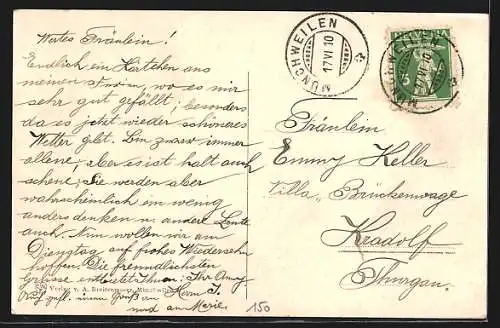 Wertes Fräulein!
Endlich ein Kärtchen aus
meinen wo es mir
sehr gut gefällt; besonders
da es jetzt wieder schöneres
Wetter gibt. Bin zwar immer
alleine, aber es ist halt auch
schene; Sie werden aber
wahrscheinlich ein wenig
anders denken u andere Leute
auch. Nun wollen wir am
Dienstag auf frohes Wiedersehn
hoffen. Die freundlichsten
Grüsse Ihnen: Ihr
Verlag v. A.
einen Gruß an Herrn J.
und an Marie.
MÜNCHWEILEN
17 VI 10
HELVETIA
5
MÜNCHWEILEN
17 VI 10
Fräulein
Emmy Keller
Villa "Brückenwage
Kradolf
Thurgau.
150